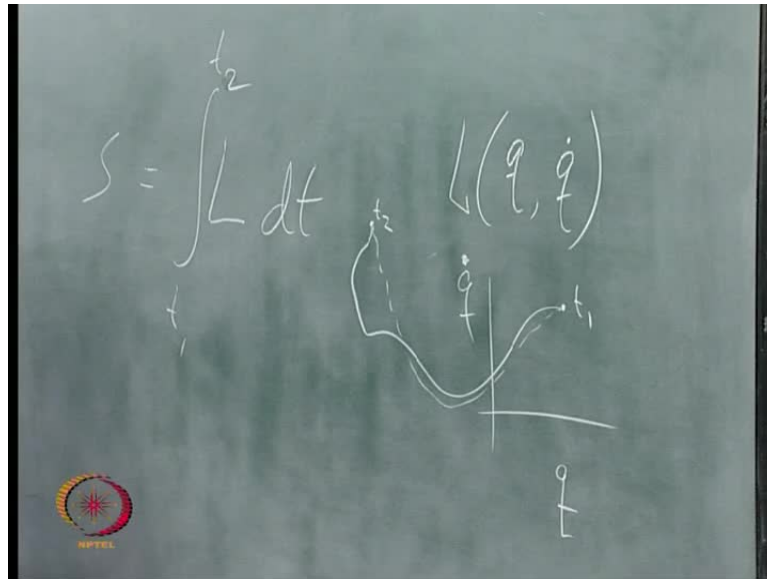 S = ∫_{t_1}^{t_2} L dt
L(q, q̇)
t_2
q̇
t_1
q
NPTEL